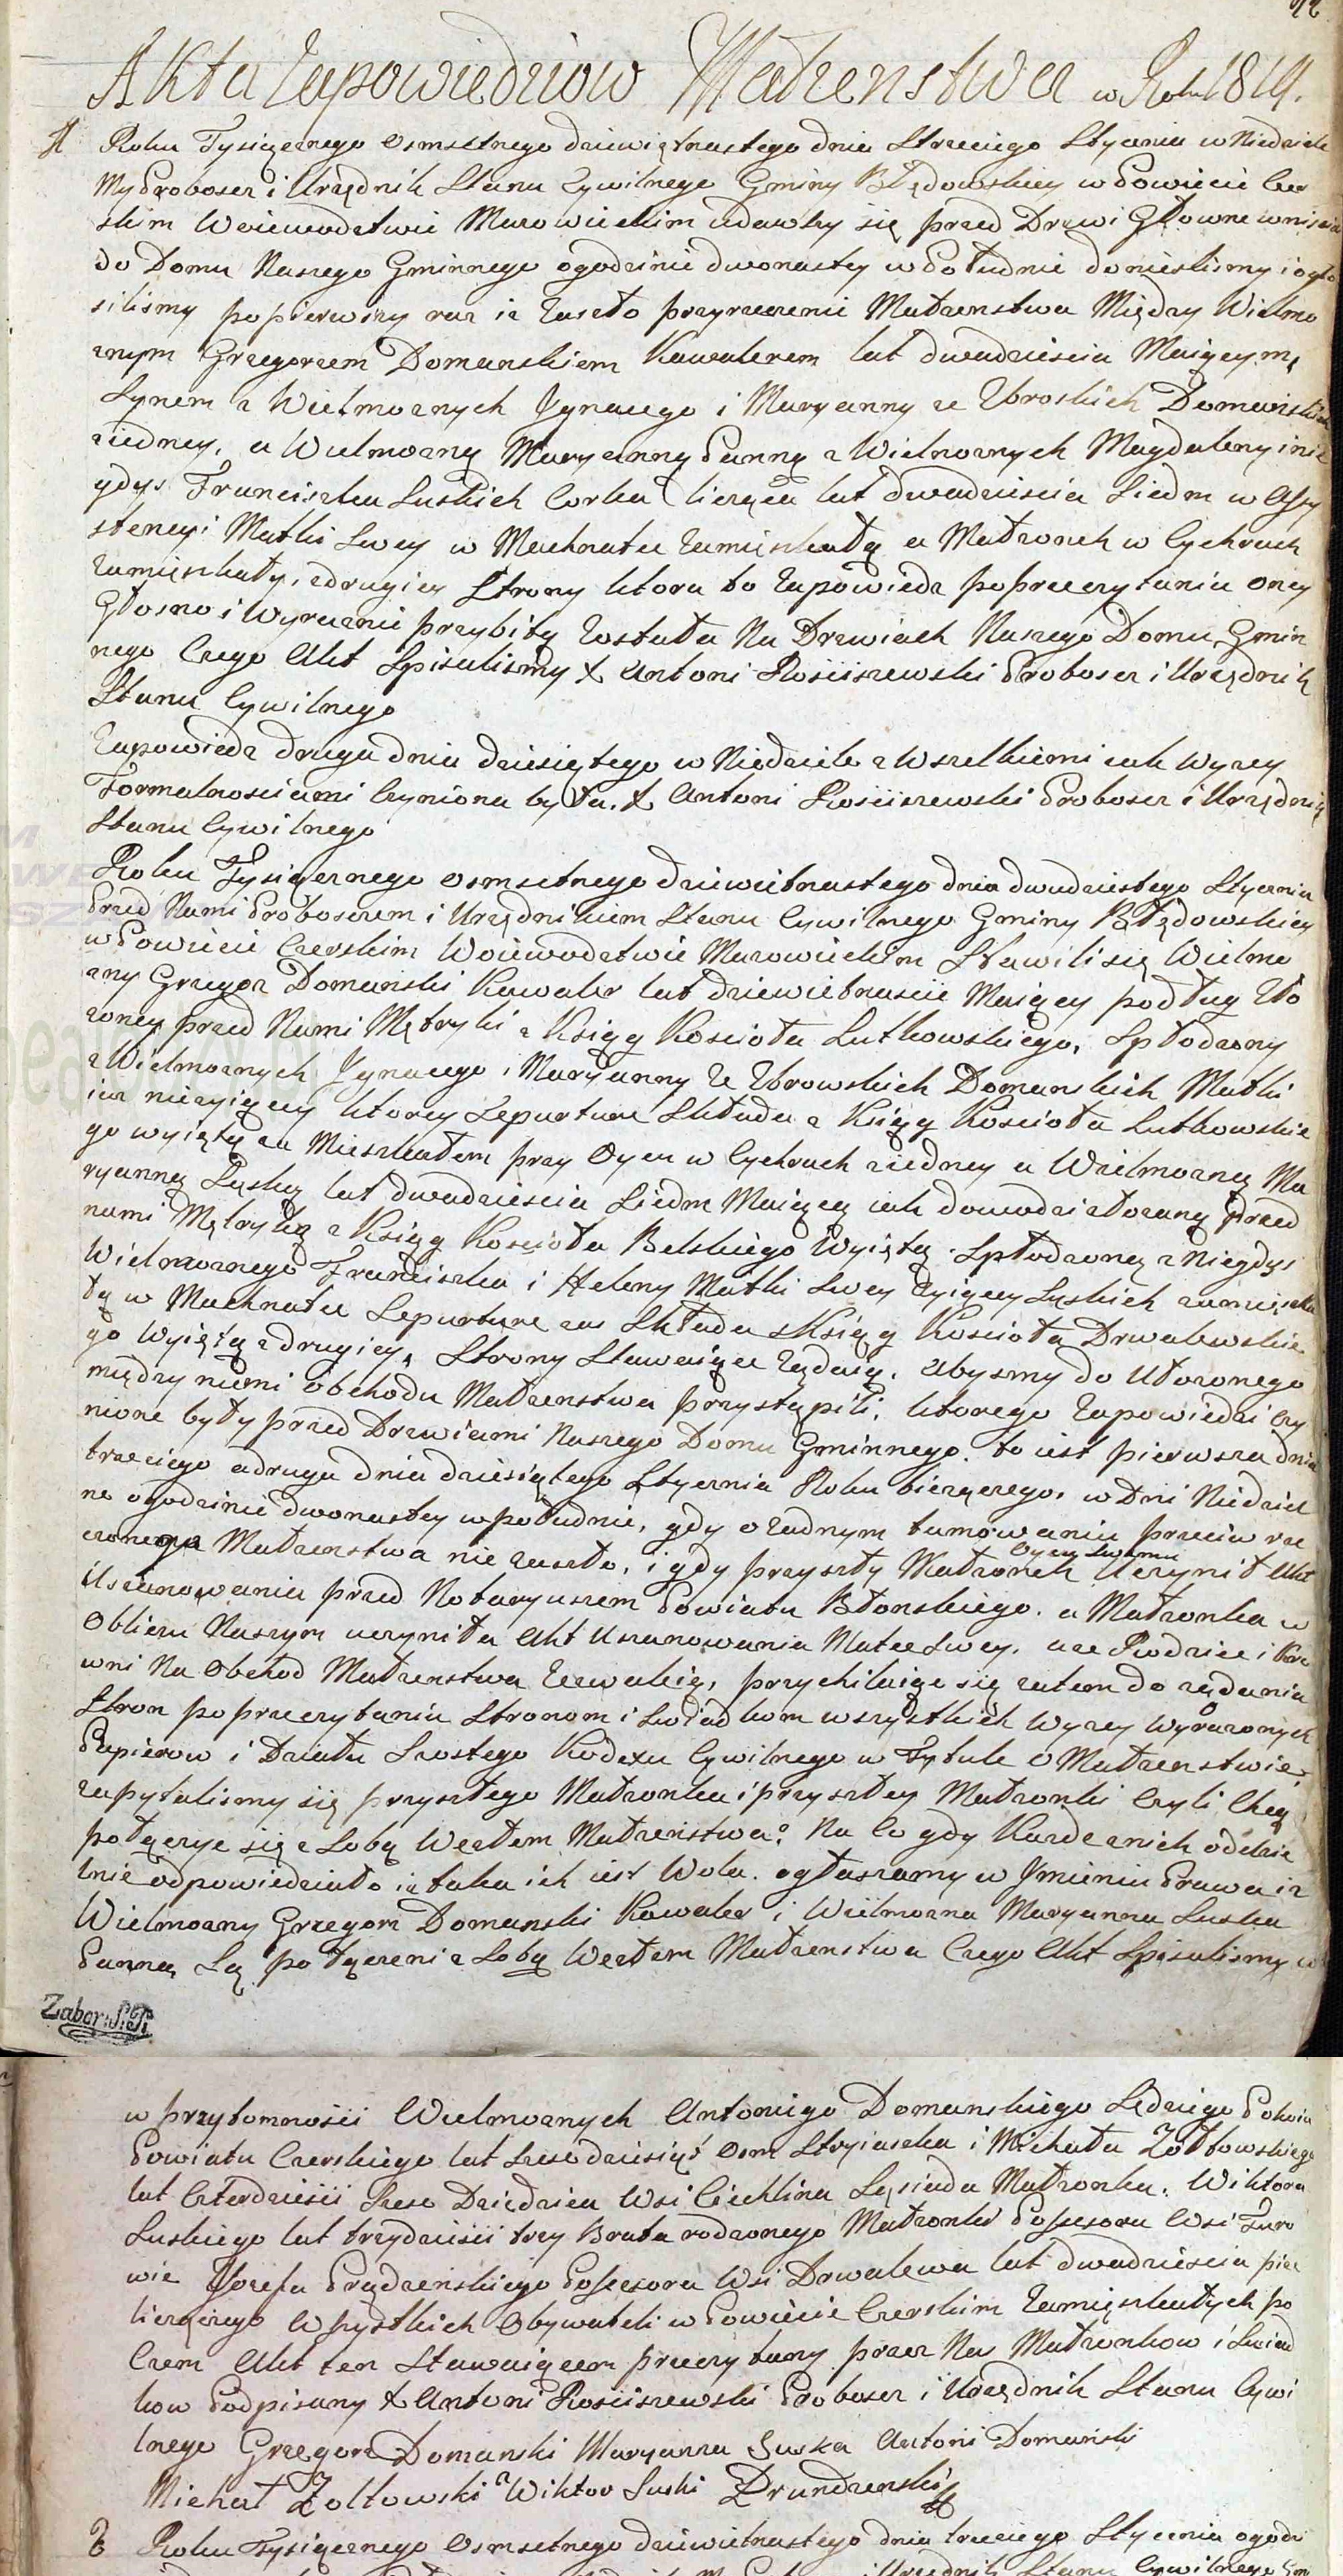 Akta Zapowiedziow Małżenstwa w Roku 1819.
1 Roku Tysiącznego osmsetnego dziewiętnastego dnia Strzeciego Stycznia w Niedziele
My Proboszcz i Urzędnik Stanu Cywilnego Gminy Błędowskiey w Powiecie Czer
skim Woiewodztwie Mazowieckim udawszy się przed Drzwi Głowne wniscia
do Domu Naszego Gminnego ogodzinie dwonastey w Południe donieslismy i ogło
silismy po pierwszy raz iż zaszło przyrzeczenie Małżenstwa Między Wielmo
żnym Grzegorzem Domanskiem Kawalerem lat dwadziescia Maiącym,
Synem z Wielmoznych Jgnacego i Maryanny ze Zbroskich Domańskich
ziedney, a Wielmożną Maryanną Panną z Wielmożnych Magdaleny i nie
gdys Franciszka Luskich Corka licząca lat dwadziescia Siedm w Assy
stencyi Matki Swey w Machnatce Zamięszkałą a Małżonek w Cychrach
zamięszkały, zdrugiey Strony ktora to Zapowiedz poprzeczytaniu oney
Głosno i Wyraznie przybitą Została Na Drzwiach Naszego Domu Gmin
nego Czego Akt Spisalismy X Antoni Rosciszewski Proboszcz i Urzędnik
Stanu Cywilnego
Zapowiedz druga dnia dziesiętego w Niedziele z Wszelkiemi iak Wyzey
Formalnosciami Czyniona była. X Antoni Rosciszewski Proboszcz i Urzędnik
Stanu Cywilnego
Roku Tysiącznego osmsetnego dziewietnastego dnia dwudziestego Stycznia
Przed Nami Proboszczem i Urzędnikiem Stanu Cywilnego Gminy Błędowskiey
w Powiecie Czerskim Woiewodztwie Mazowieckim Stawili się Wielmo
zny Grzegorz Domanski Kawaler lat dziewietnascie Maiący podług Zło
zoney przed Nami Mętryki z Księg Koscioła Lutkowskiego, Spłodzony
z Wielmoznych Jgnacego i Maryanny ze Zbrowskich Domanskich Matki
iuz niezyiącey ktorey Separture Składa z Księg Koscioła Lutkowskie
go wyiętą za Mieszkałem przy Oycu w Cychrach ziedney a Wielmozną Ma
ryanną Luską lat dwadziescia Siedm Maiącą iak dowodzi złozaną przed
nami Mętryką z Księg Kosciołu Belskiego Wyiętą Spłodzoną z Niegdys
Wielmoznego Franciszka i Heleny Matki Swey zyiącey Luskich zamięszka
łą w Machnatce Separture zas Składa zKsiąg Koscioła Drwalewskie
go Wyiętą zdrugiey, Strony Stawaiące Ządaią, Abysmy do Ułozonego
między niemi obchodu Małzenstwa przystąpili, ktorego Zapowiedzi Czy
nione były przed Drzwiami Naszego Domu Gminnego. to iest pierwsza dnia
trzeciego adruga dnia dziesiątego Stycznia Roku biezączego, w Dni Niedziel
ne ogodzinie dwonastey wpołudnie, gdy o zadnym tamowaniu przeciw rze
czonego Małzenstwa nie zaszło, i gdy przyszły Małzonek Oycu Swemu Uczynił Akt
Uszanowania przed Notaryuszem Powiatu Błonskiego. a Małzonka w
Obliczu Naszym uczyniła Akt Uszanowania Matce Swey, aze Rodzice i Kre
wni Na Obchod Małzenstwa Zezwalią, przychilaiąc się zatem do ządania
Stron poprzeczytaniu Stronom i Swiadkom wszystkich wyzey wyrazonych
Papierow i Działu Szostego Kodexu Cywilnego w Tytule O Małzenstwie,
zapytalismy się przyszłego Małzonka i przyszłey Małzonki Czyli Chcą
połączyc się z Sobą Węzłem Małzeństwa? Na Co gdy Kazde znich oddzie
lnie odpowiedziało iz taka ich iest Wola. ogłaszamy w Jmieniu Prawa iz
Wielmozny Grzegorz Domanski Kawaler i Wielmozna Maryanna Luska
Panna Są połączeni z Sobą Węzłem Małzenstwa Czego Akt Spisalismy w
Zabor: P.P.
w przytomnosci Wielmoznych Antoniego Domanskiego Sędziego Pokoiu
Powiatu Czerskiego lat szescdziesiąt osm Stryiaszka i Michała Zołtowskiego
lat Czterdziesci Szesc Dziedzica Wsi Ciechlina Sąsiada Małzonka, Wiktora
Luskiego lat trzydziesci trzy Brata rodzonego Małzonki Possesora Wsi Zuro
wie Jozefa Prądzenskiego Possesora Wsi Drwalewa lat dwadziescia pięc
liczącego Wszystkich Obywateli w Powiecie Czerskim Zamięszkałych po
Czem Akt ten Stawaiącem przeczytany przez Nas Małzonkow i Swiad
kow Podpisany X Antoni Rosciszewski Proboszcz i Urzędnik Stanu Cywi
lnego Grzegorz Domanski Maryanna Luska Antoni Domanski
Michał Zołtowski Wiktor Luski Prundzenski
2 Roku Tysiącznego osmsetnego dziewietnastego dnia trzeciego Stycznia ogodzi